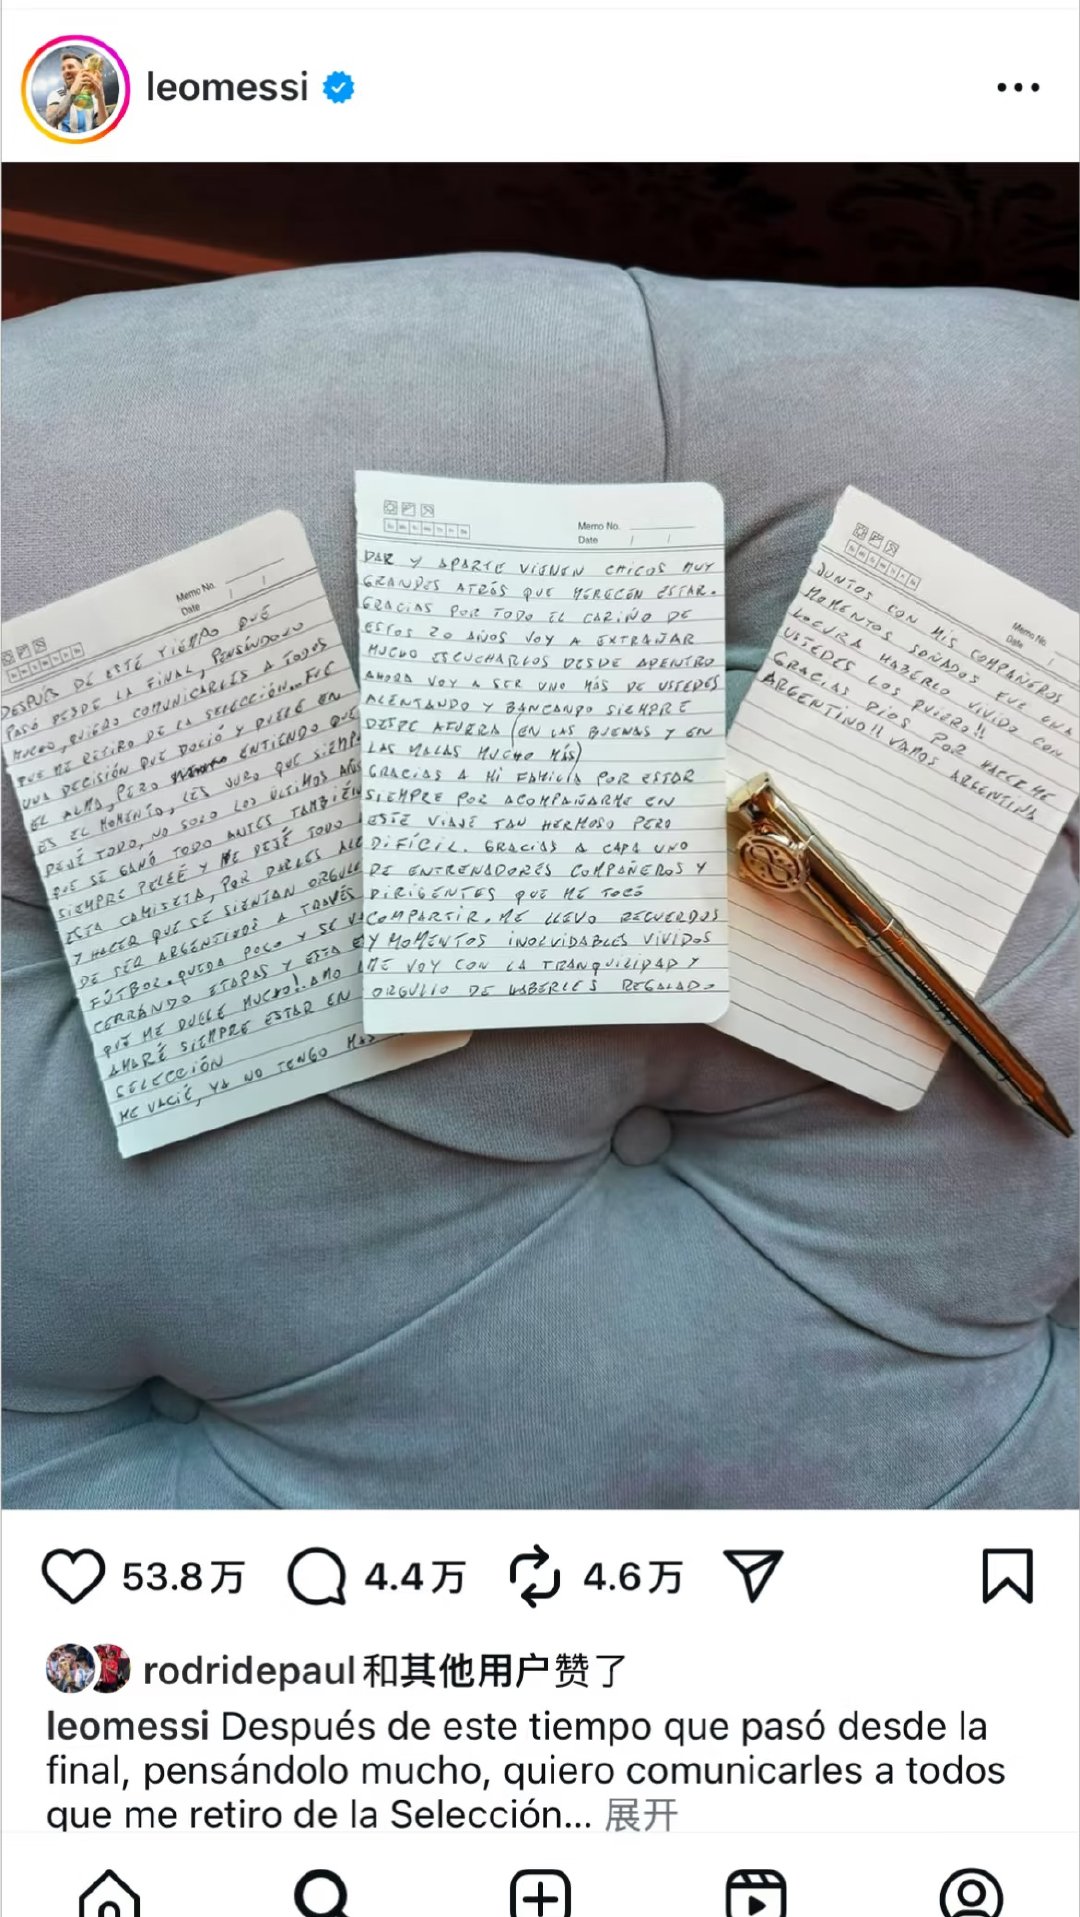 leomessi
Memo No.
Date / /
DESPUÉS DE ESTE TIEMPO QUE
PASÓ DESDE LA FINAL, PENSÁNDOLO
MUCHO, QUIERO COMUNICARLES A TODOS
QUE ME RETIRO DE LA SELECCIÓN... FUE
UNA DECISIÓN QUE DOLIÓ Y DUELE EN
EL ALMA, PERO ENTIENDO QUE
ES EL MOMENTO, LES JURO QUE SIEMP
DEJÉ TODO, NO SOLO LOS ÚLTIMOS AÑOS
QUE SE GANÓ TODO ANTES TAMBIÉN
SIEMPRE PELEÉ Y ME DEJÉ TODO
ESTA CAMISETA, POR DARLES ALE
Y HACER QUE SE SIENTAN ORGULL
DE SER ARGENTINOS A TRAVÉS
FÚTBOL. QUEDA POCO Y SE V
CERRANDO ETAPAS Y ESTA E
QUE ME DUELE MUCHO! AMO
AMARÉ SIEMPRE ESTAR EN
SELECCIÓN
ME VACIÉ, YA NO TENGO MÁS
Memo No.
Date / /
DAR Y APARTE VIENEN CHICOS MUY
GRANDES ATRÁS QUE MERECEN ESTAR.
GRACIAS POR TODO EL CARIÑO DE
ESTOS 20 AÑOS VOY A EXTRAÑAR
MUCHO ESCUCHARLOS DESDE ADENTRO
AHORA VOY A SER UNO MÁS DE USTEDES
ALENTANDO Y BANCANDO SIEMPRE
DESDE AFUERA (EN LAS BUENAS Y EN
LAS MALAS MUCHO MÁS)
GRACIAS A MI FAMILIA POR ESTAR
SIEMPRE POR ACOMPAÑARME EN
ESTE VIAJE TAN HERMOSO PERO
DIFÍCIL. GRACIAS A CADA UNO
DE ENTRENADORES COMPAÑEROS Y
DIRIGENTES QUE ME TOCÓ
COMPARTIR. ME LLEVO RECUERDOS
Y MOMENTOS INOLVIDABLES VIVIDOS
ME VOY CON LA TRANQUILIDAD Y
ORGULLO DE HABERLES REGALADO
Memo No.
Date / /
JUNTOS CON MIS COMPAÑEROS
MOMENTOS SOÑADOS FUE UNA
LOCURA HABERLO VIVIDO CON
USTEDES LOS QUIERO!!
GRACIAS DIOS POR HACERME
ARGENTINO!! VAMOS ARGENTINA
53.8万 4.4万 4.6万
rodridepaul和其他用户赞了
leomessi Después de este tiempo que pasó desde la
final, pensándolo mucho, quiero comunicarles a todos
que me retiro de la Selección... 展开